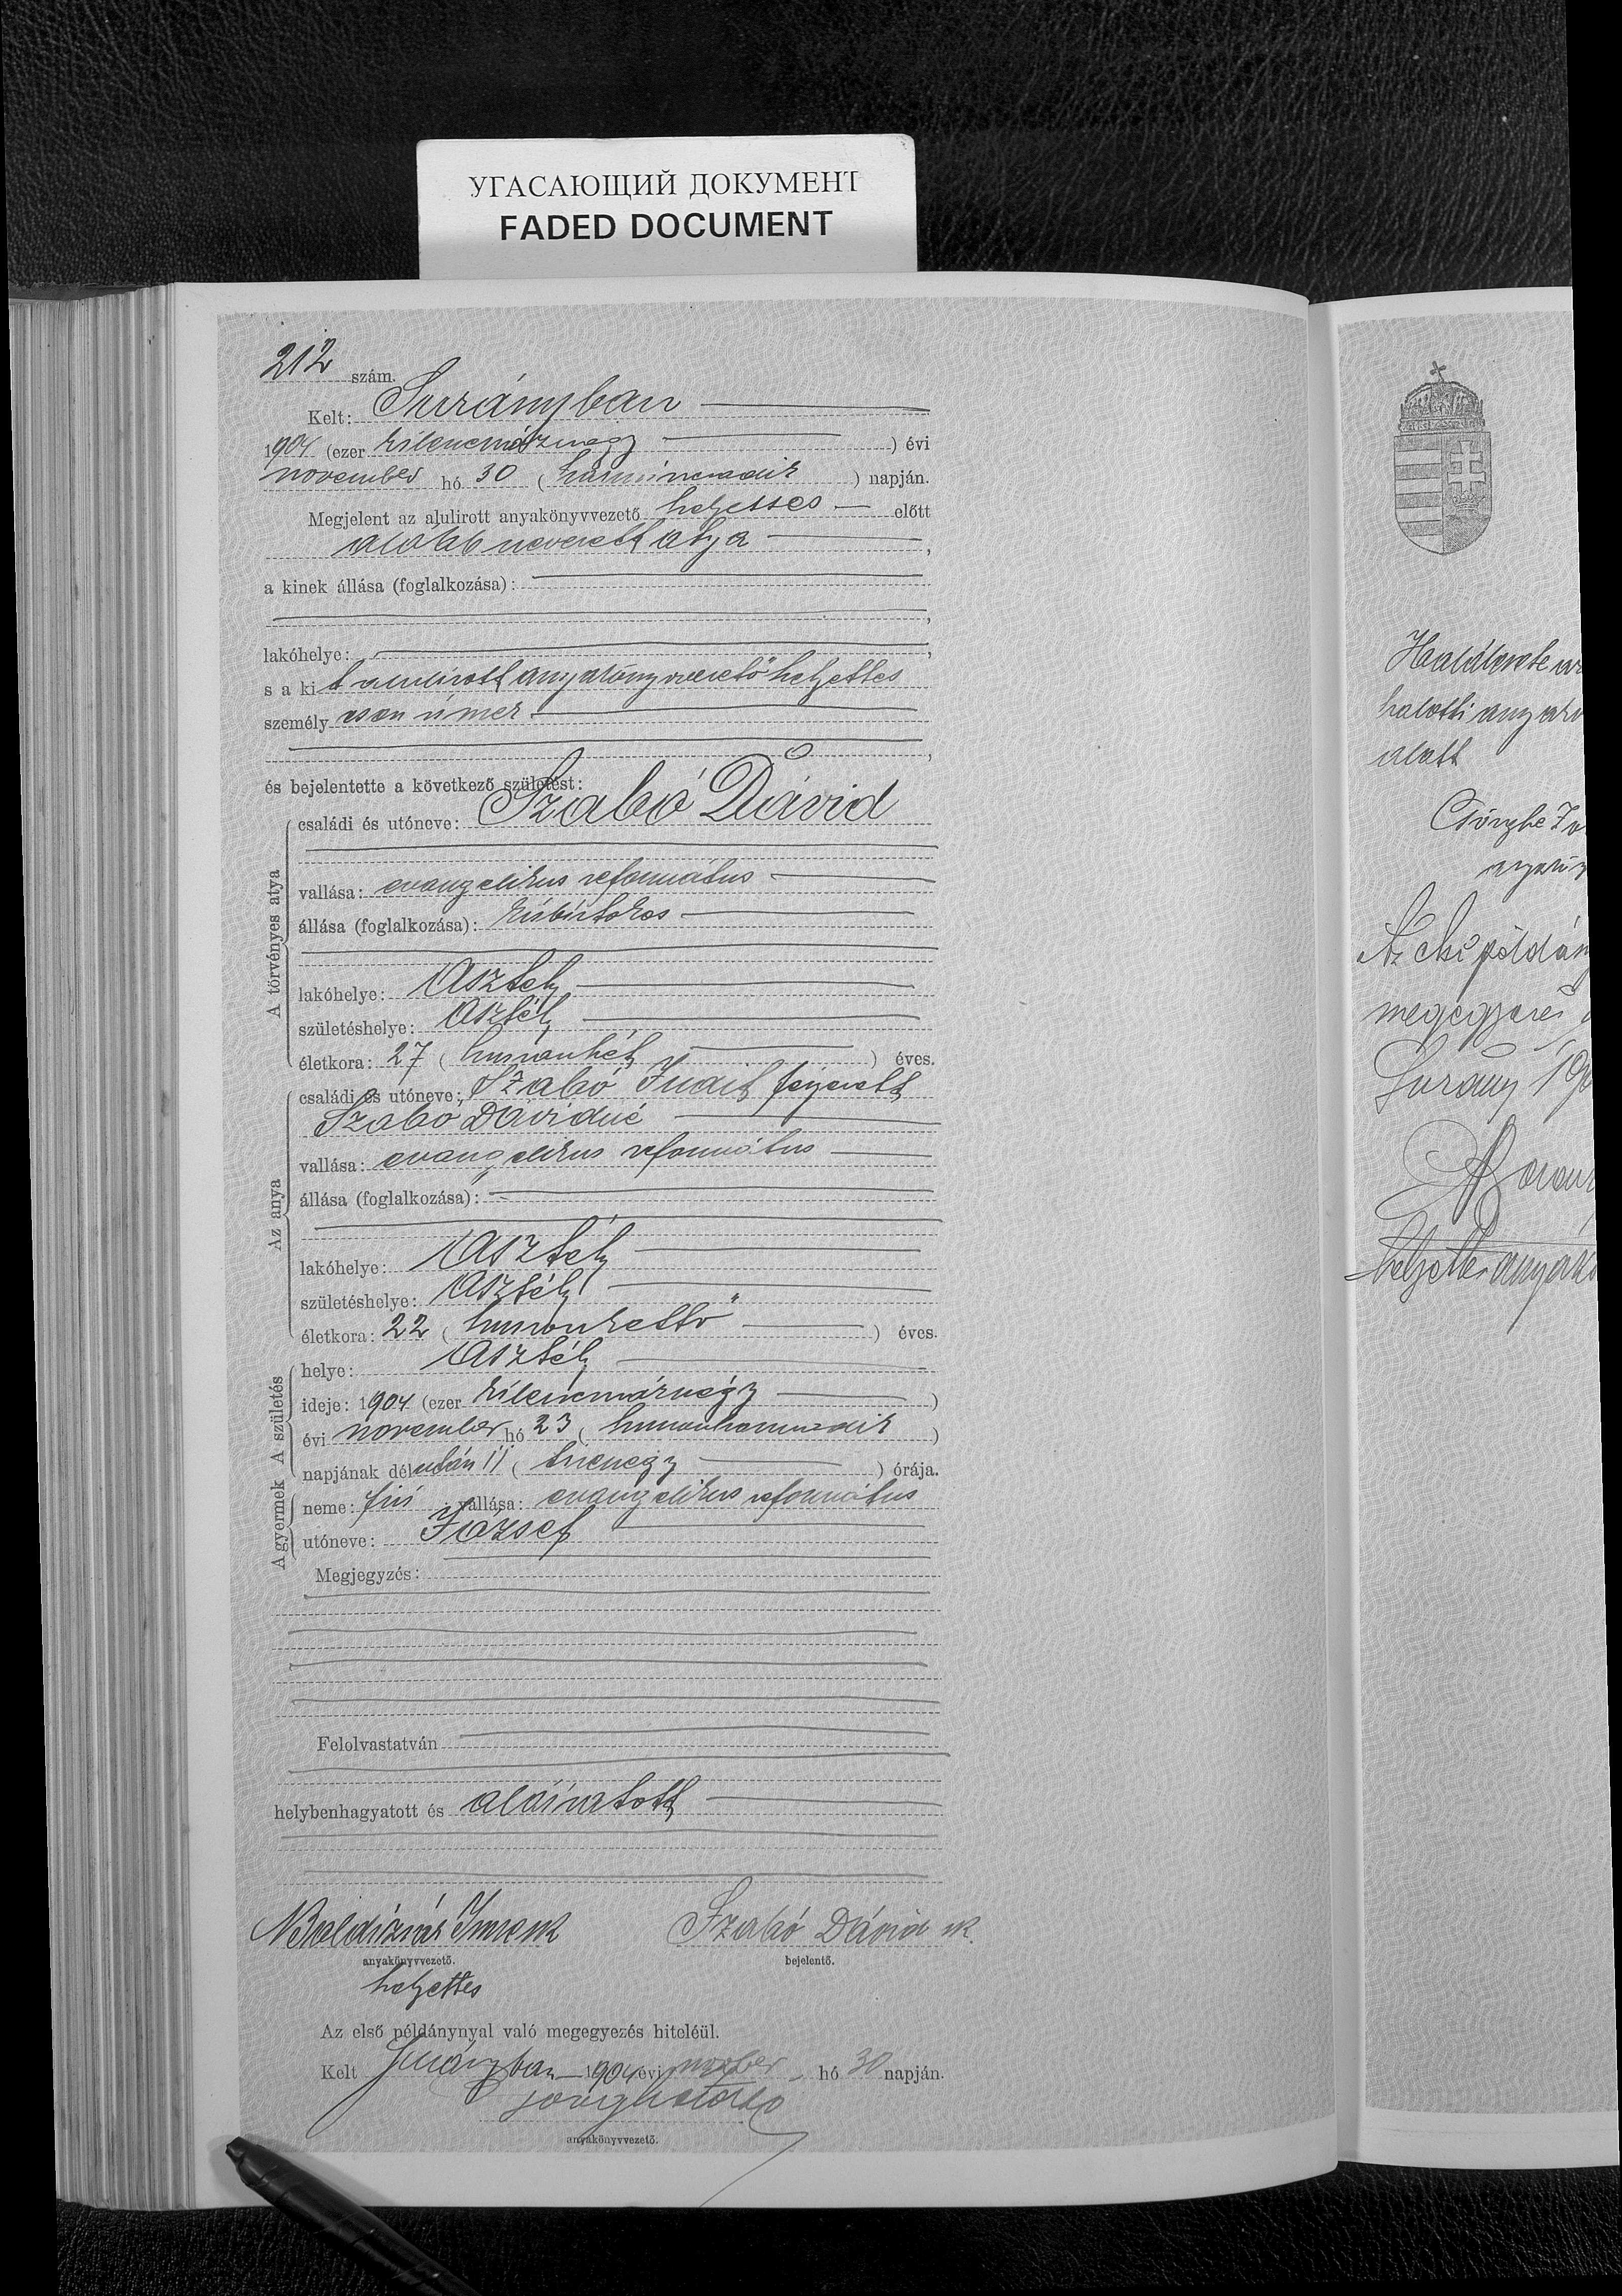 УГАСАЮЩИЙ ДОКУМЕНТ
FADED DOCUMENT
212 szám.
Kelt: Surányban
1904 (ezer kilencszáznégy ) évi
november hó 30 ( harmincadik ) napján.
Megjelent az alulirott anyakönyvvezető helyettes előtt
alább nevezett atya ,
a kinek állása (foglalkozása):
,
lakóhelye: ,
s a kit alulirott anyakönyvvezető helyettes
személyesen ismer
,
és bejelentette a következő születést:
A törvényes atya
családi és utóneve: Szabó Dávid
vallása: evangelikus református
állása (foglalkozása): kisbirtokos
lakóhelye: Asztély
születéshelye: Asztély
életkora: 27 ( huszonhét ) éves.
Az anya
családi és utóneve: Szabó Judit férjezett
Szabó Dávidné
vallása: evangelikus református
állása (foglalkozása): –
lakóhelye: Asztély
születéshelye: Asztély
életkora: 22 ( huszonkettő ) éves.
A születés
helye: Asztély
ideje: 1904 (ezer kilencszáznégy )
évi november hó 23 ( huszonharmadik )
napjának délután 11 ( tizenegy ) órája.
A gyermek
neme: fiú vallása: evangelikus református
utóneve: József
Megjegyzés:
Felolvastatván
helybenhagyatott és aláíratott
Boldizsár Imre sk Szabó Dávid sk.
anyakönyvvezető. bejelentő.
helyettes
Az első példánynyal való megegyezés hiteléül.
Kelt Surányban 1904 évi november hó 30 napján.
anyakönyvvezető.
halotti anyakö
alatt
Az első példán
megegyezés
Surány 190
helyettes anyakö